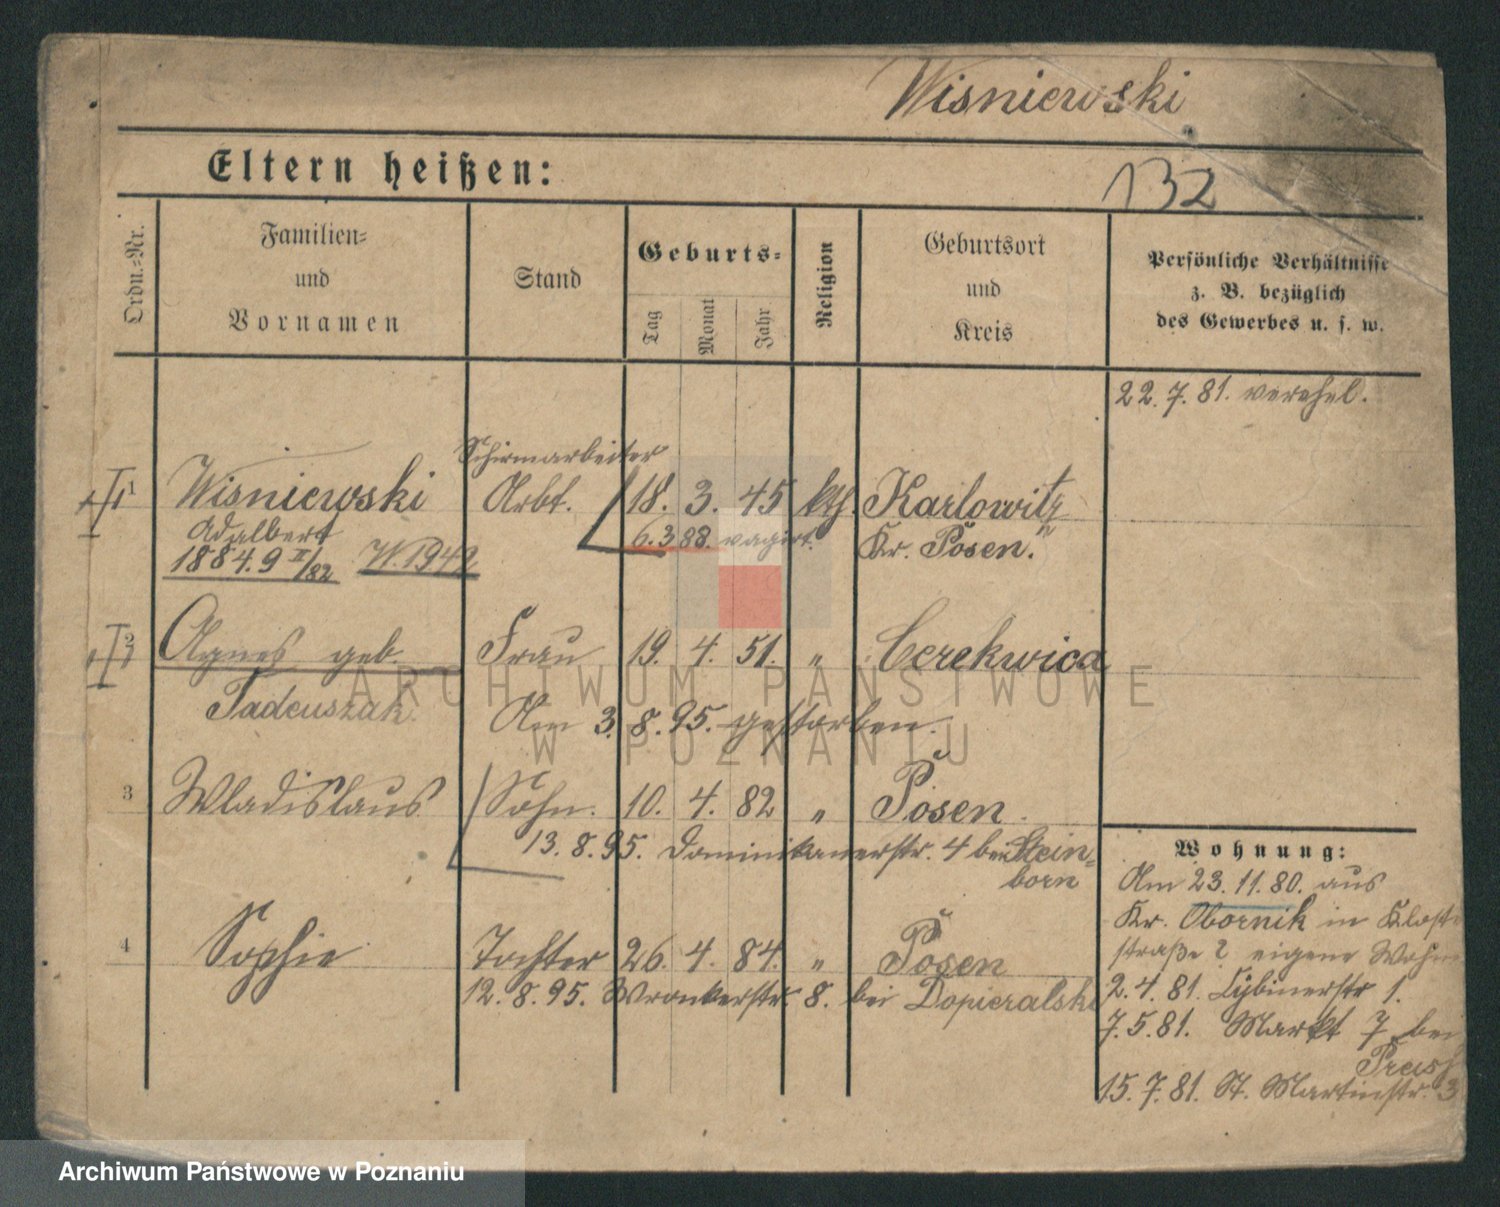 Wisniewski
Eltern heißen:
132
Ordn.-Nr.
Familien-
und
Vornamen
Stand
Geburts-
Tag
Monat
Jahr
Religion
Geburtsort
und
Kreis
Persönliche Verhältnisse
z. B. bezüglich
des Gewerbes u. s. w.
22. 7. 81. verehel.
Schirmarbeiter
1 Wisniewski Arbt. 18. 3. 45 kth. Karlowitz
Adalbert 6. 3 88. vagirt. Kr. Posen.
1884. 9 II/82 W. 1942
2 Agnes geb. Frau 19. 4. 51. " Cerekwica
Tadeuszak
Am 3. 8. 95. gestorben.
3 Wladislaus Sohn. 10. 4. 82 " Posen.
13. 8. 95. Dominikanerstr. 4 bei Stein-
born
4 Sophie Tochter 26. 4. 84. " Posen
12. 8. 95. Wronkerstr. 8. bei Dopieralski
Wohnung:
Am 23. 11. 80. aus
Kr. Obornik in
straße 2 eigene
2. 4. 81. Lybinerstr 1.
7. 5. 81. Markt 7 bei
15. 7. 81. St. Martinstr. 3
ARCHIWUM PAŃSTWOWE
W POZNANIU
Archiwum Państwowe w Poznaniu